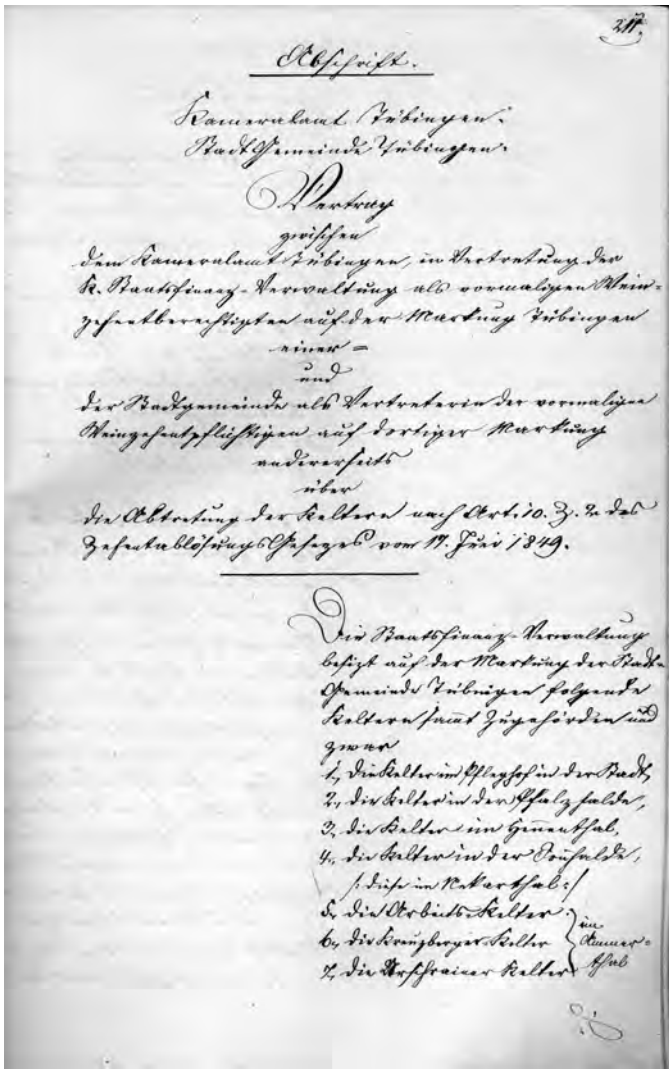 217.
Abschrift.
Kameralamt Tübingen.
StadtGemeinde Tübingen.
Vertrag
zwischen
dem Kameralamt Tübingen, in Vertretung der
K. Staatsfinanz-Verwaltung als vormaligen Wein-
zehentberechtigten auf der Markung Tübingen
einer=
und
der Stadtgemeinde als Vertreterin der vormaligen
Weinzehentpflichtigen auf dortiger Markung
andererseits
über
die Abtretung der Keltern nach Art. 10. Z. 2 des
ZehentablösungsGesezes vom 17. Juni 1849.
Die Staatsfinanz-Verwaltung
besizt auf der Markung der Stadt-
Gemeinde Tübingen folgende
Keltern sammt Zugehörden und
zwar
1, Die Kelter im Pfleghof in der Stadt,
2, die Kelter in der Pfalzhalde,
3, die Kelter im Hennenthal,
4, die Kelter in der Sonnhalde,
/: diese im Nekarthal :/
5, die Arbeits-Kelter
6, die Kreuzberger-Kelter
7, die Kelter
im
Ammer=
thal